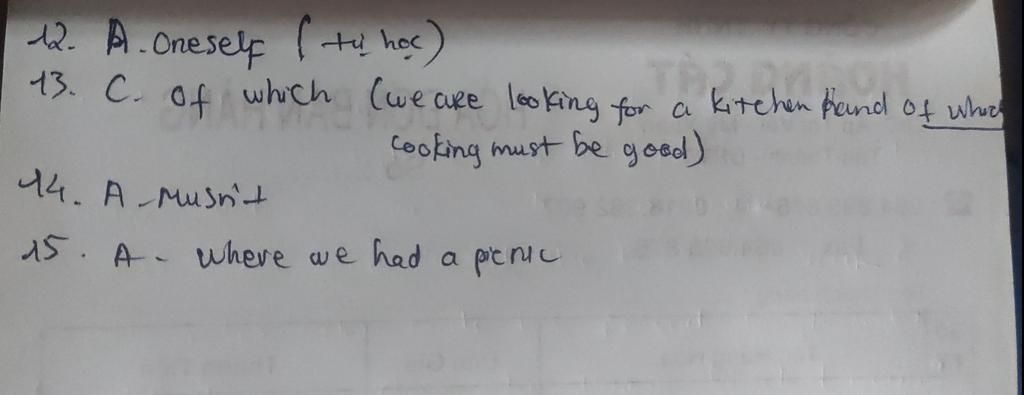 12. A. Oneself (tự học)
13. C. Of which (we are looking for a kitchen hand of which
cooking must be good)
14. A - Musn't
15. A - Where we had a picnic